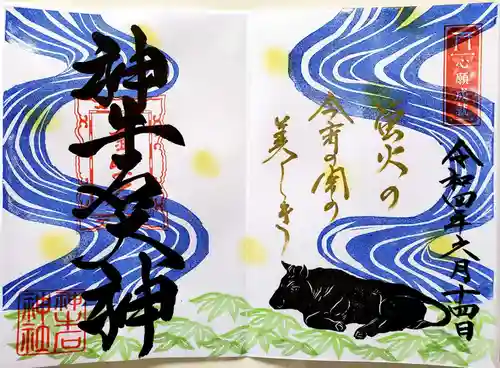 心願成就
令和四年六月十四日
蛍火の
今宵の闇の
美しき
神牛
神
神社